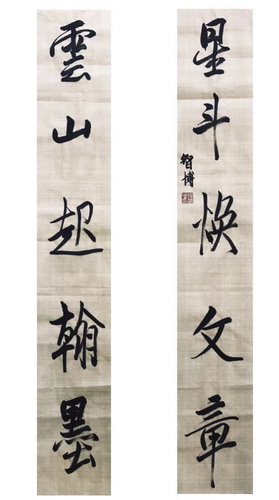 星斗煥文章
智博
雲山起翰墨